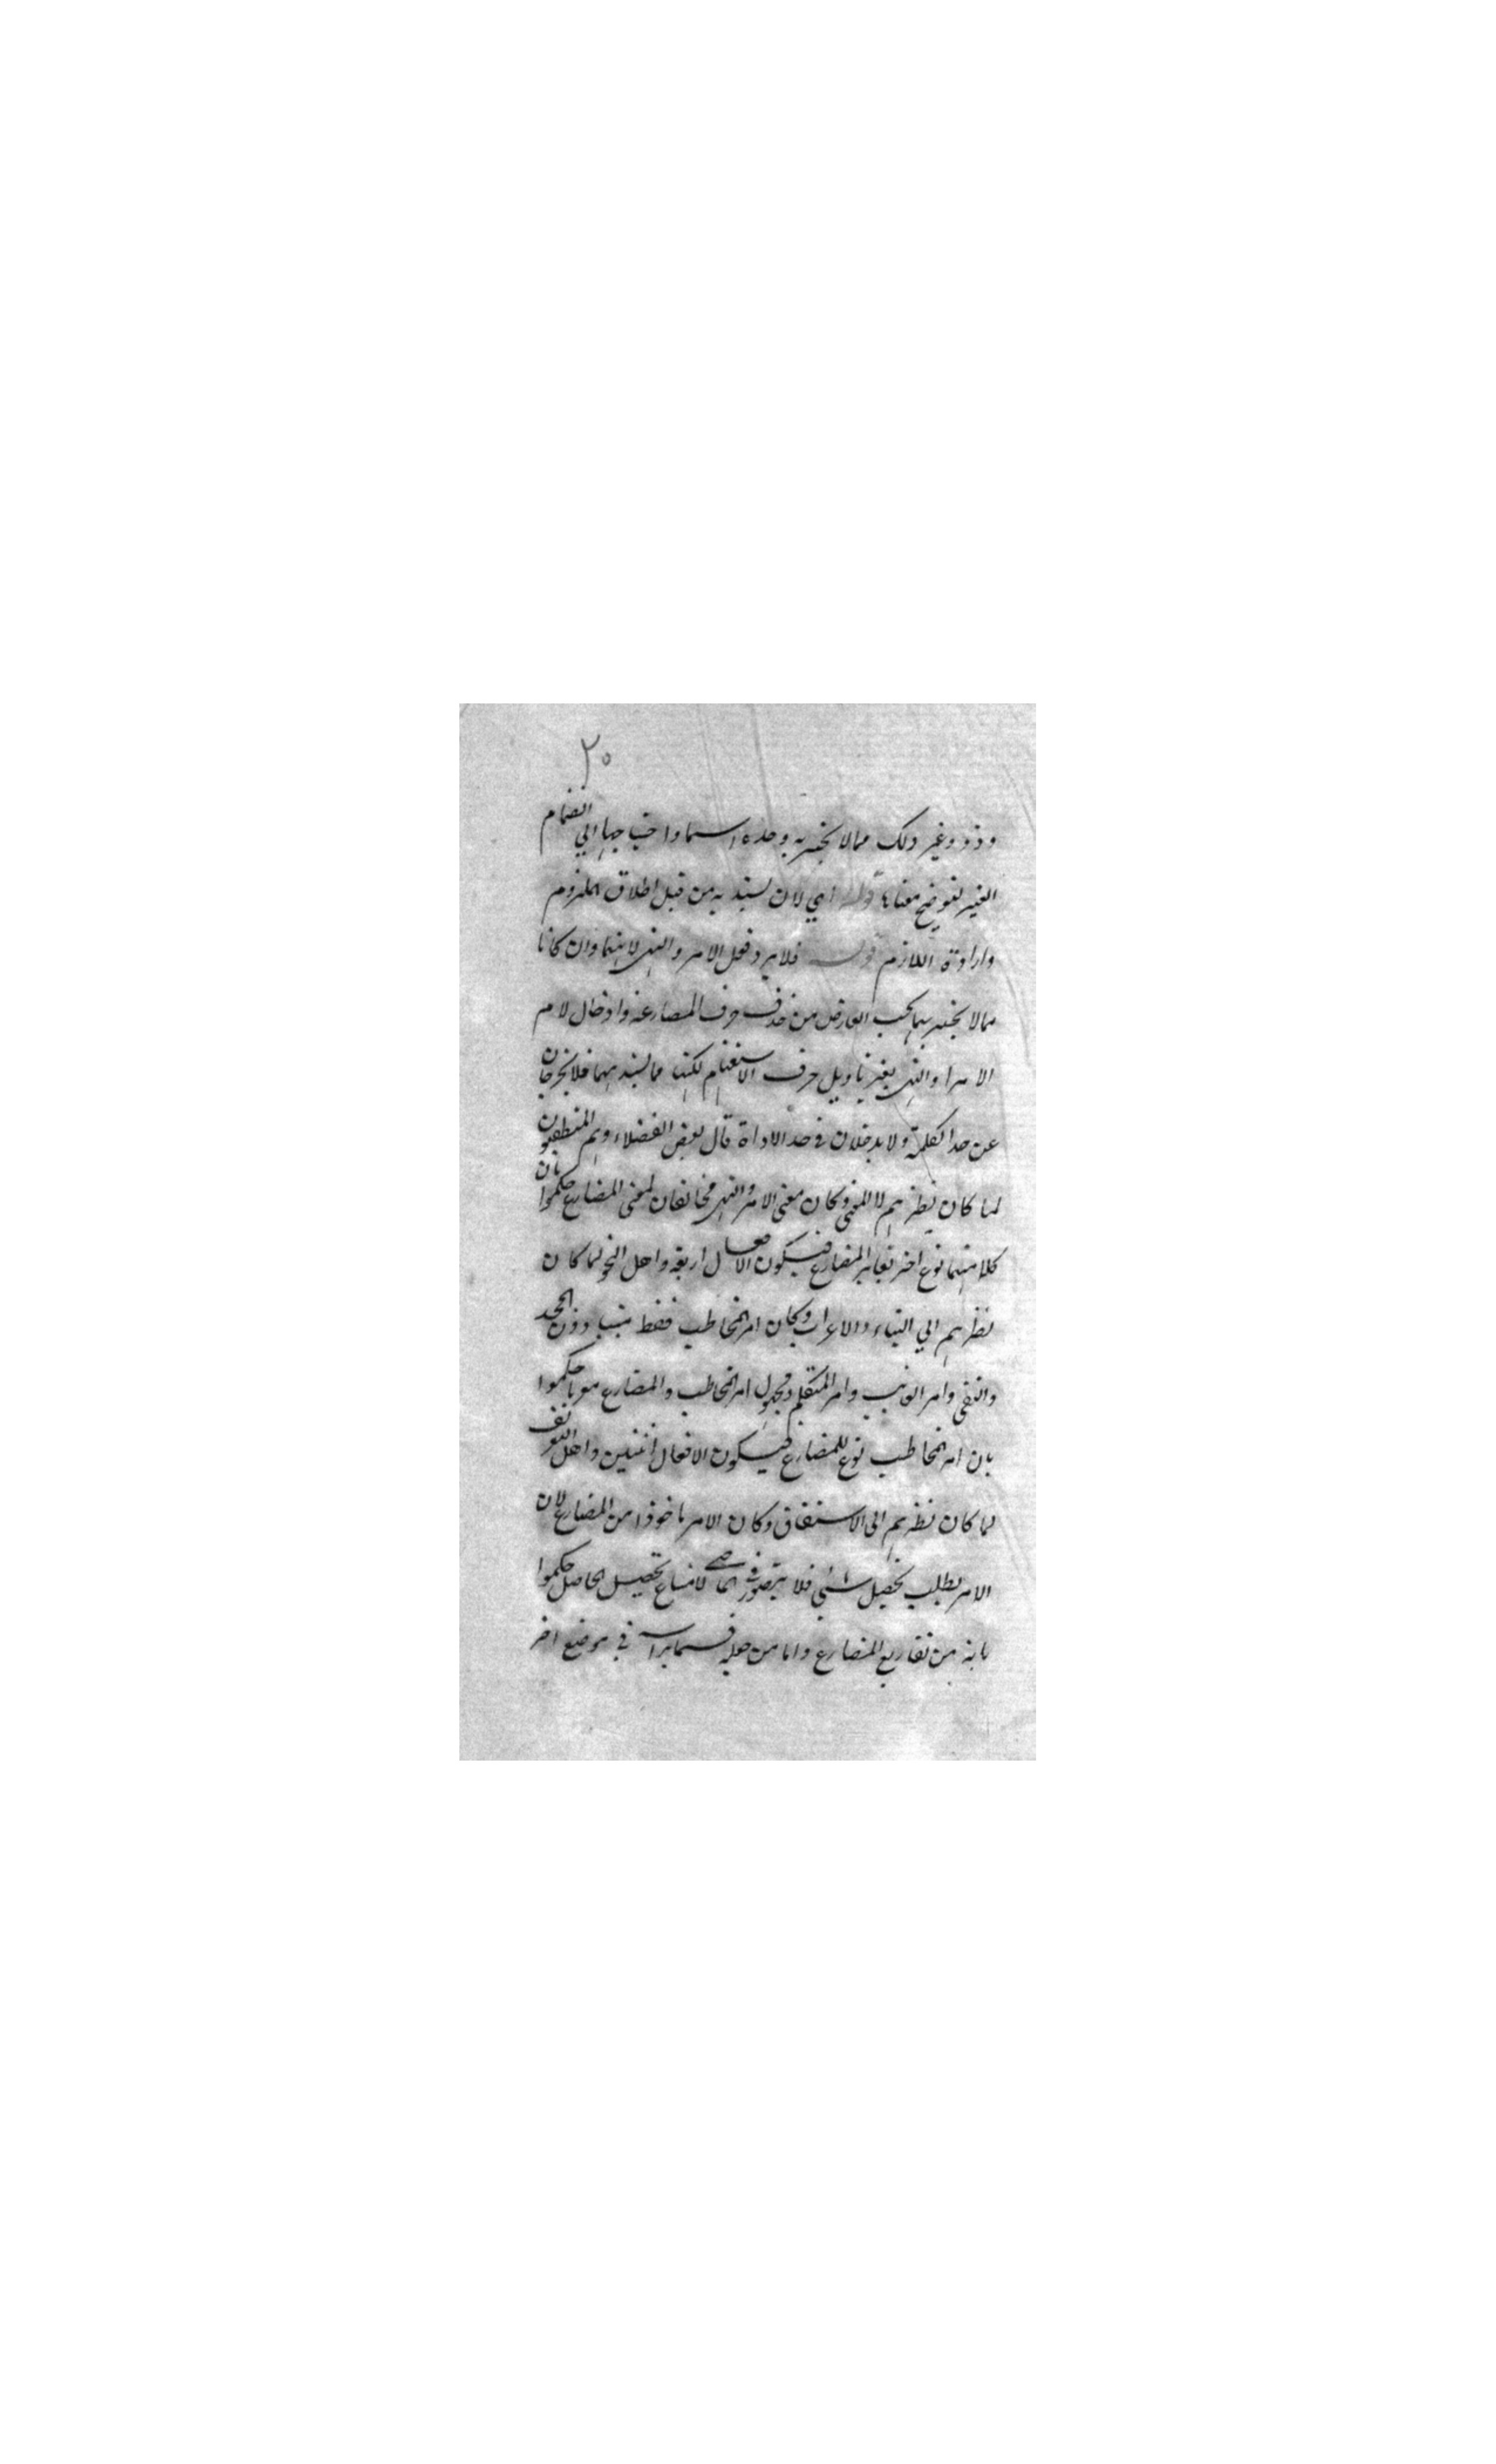 ٢٠
وذو وغير ذلك مما لا يخبر به وحده اسما واحتياجها الى انضمام
الغير لتوضيح معناها قوله اي لان يسند به من قبيل اطلاق الملزوم
وارادة اللازم قوله فلا يرد فعل الامر والنهى لانهما وان كانا
مما لا يخبر بهما بحسب العارض من حذف حرف المضارعة وادخال لام
الامر او النهى بغير تاويل حرف الاستفهام لكنهما مما يسند بهما فلا يخرجان
عن حد الكلمة ولا يدخلان فى حد الاداة قال بعض الفضلاء وهم المنطقيون
لما كان نظرهم الا المعنى وكان معنى الامر والنهى مخالفان لمعنى المضارع حكموا بان
كلا منهما نوع اخر تغاير المضارع فيكون الافعال اربعة واهل النحو لما كان
نظرهم الي البناء والاعراب وكان امر المخاطب فقط مبنيا دون الجحد
والنفى وامر الغائب وامر المتكلم ومجهول امر المخاطب والمضارع معربا حكموا
بان امر المخاطب نوع للمضارع فيكون الافعال اثنين واهل التصريف
لما كان نظرهم الى الاشتقاق وكان الامر ماخوذا من المضارع لان
الامر يطلب تحصيل شئي فلا يتصور فى الماضى لامتناع تحصيل الحاصل حكموا
بانه من تفاريع المضارع واما من فى موضع اخر